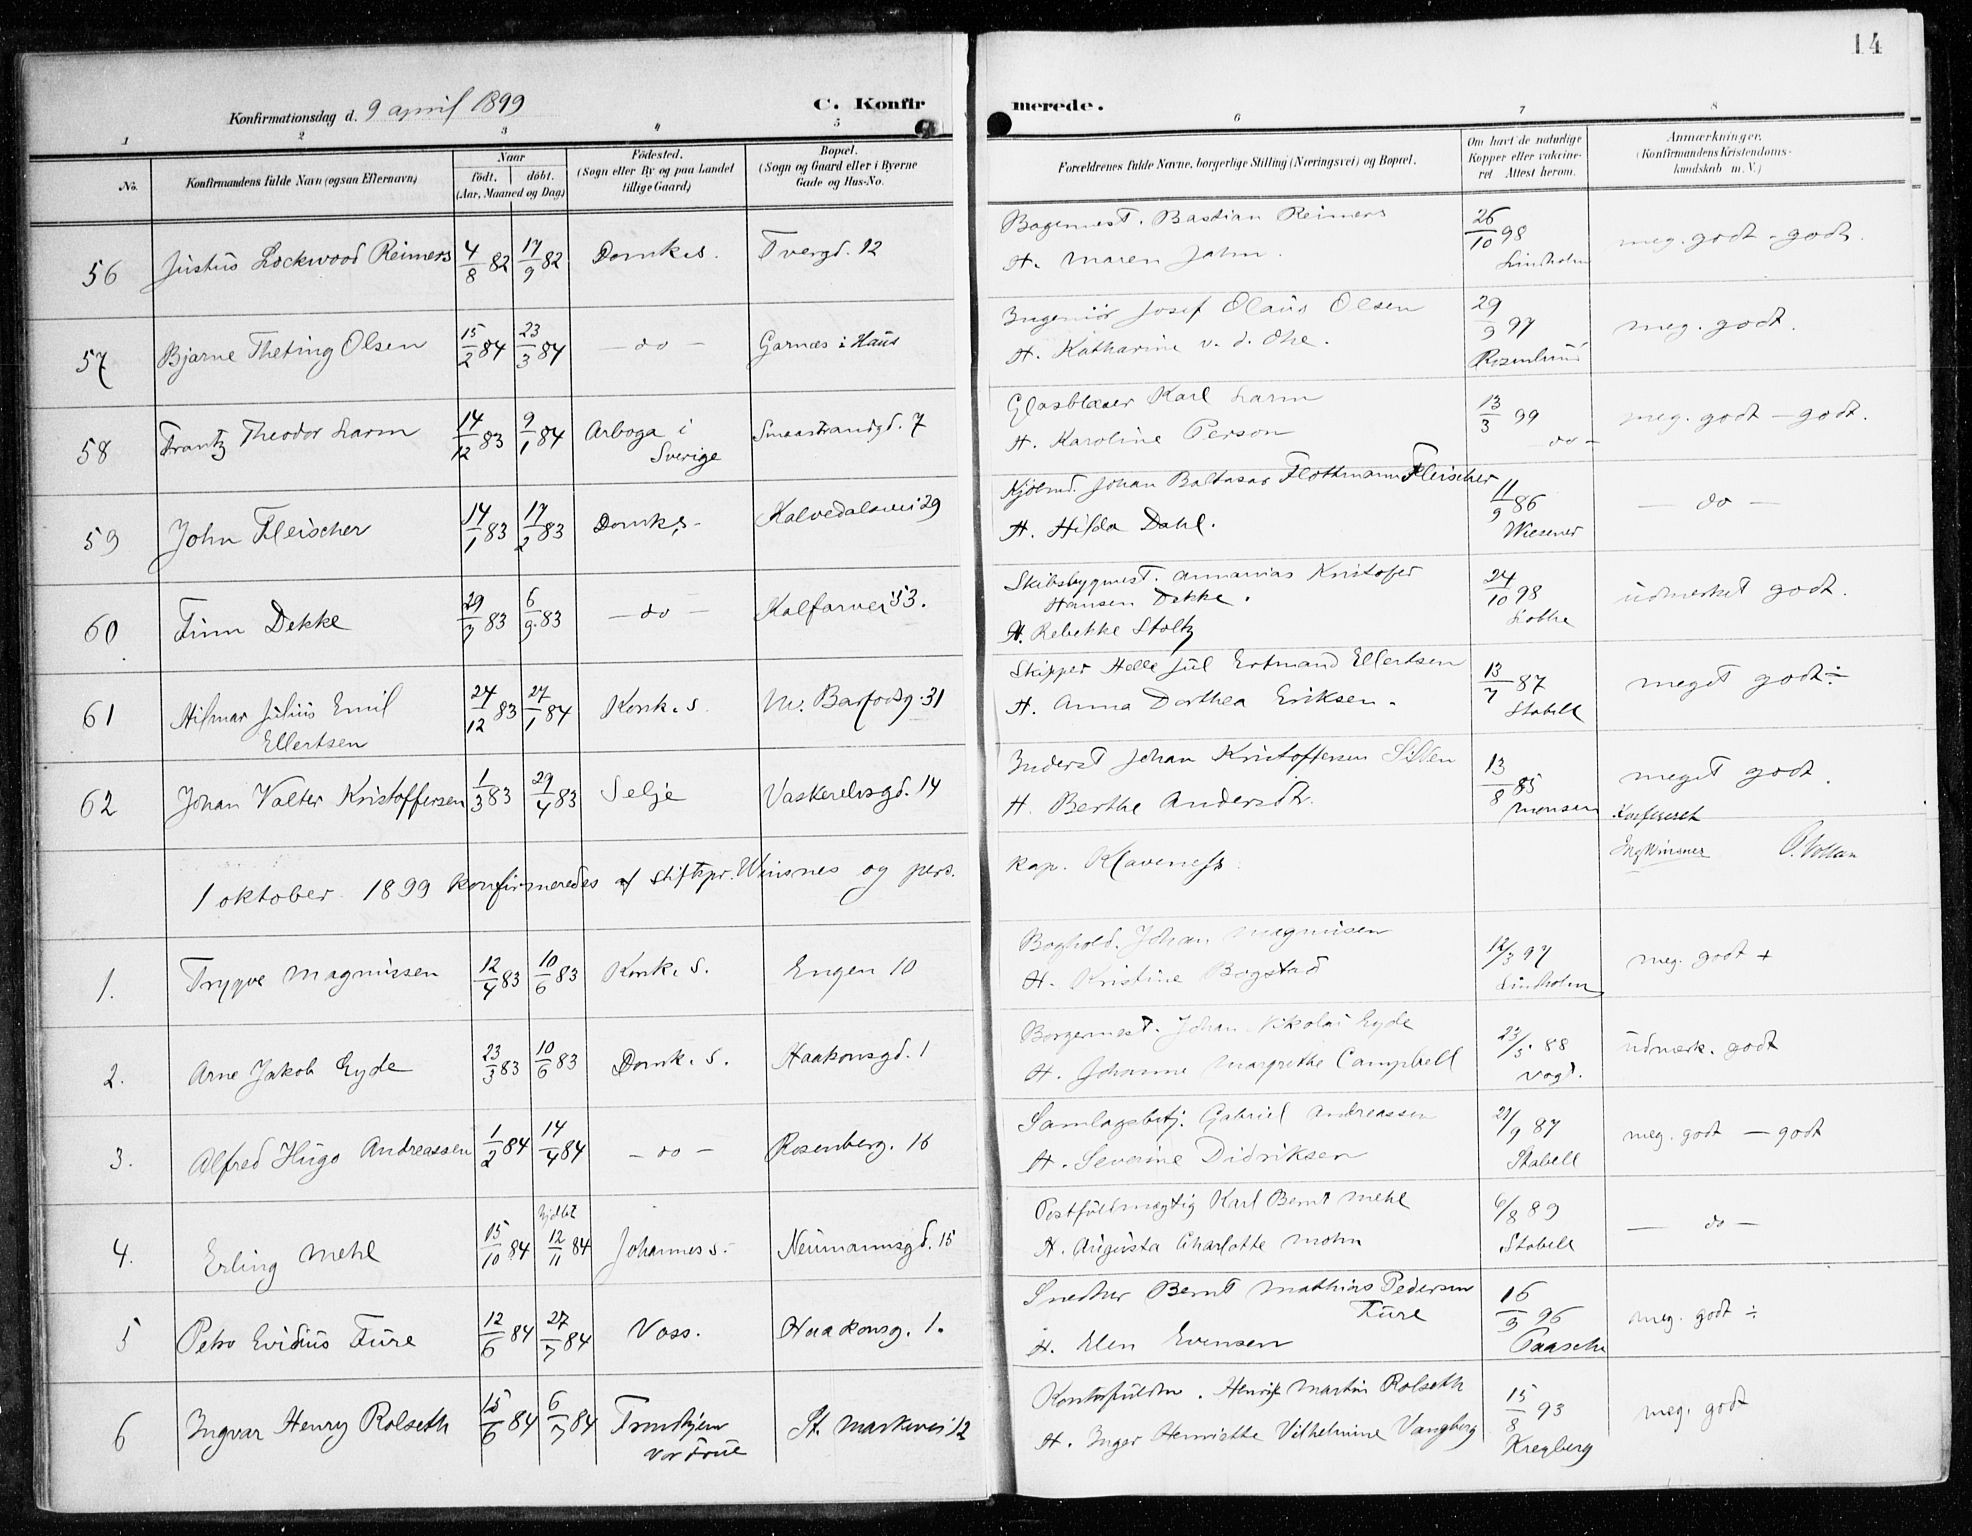 14
Konfirmationsdag d. 9 april 1899
C. Konfirmerede.
1 2 3 4 5 6 7 8
No.
Konfirmandens fulde Navn (ogsaa Efternavn)
Naar
født. døbt.
(Aar, Maaned og Dag)
Fødested.
(Sogn eller By og paa Landet
tillige Gaard)
Bopæl.
(Sogn og Gaard eller i Byerne
Gade og Hus-No.
Forældrenes fulde Navne, borgerlige Stilling (Næringsvei) og Bopæl.
Om havt de naturlige
Kopper eller vakcine-
ret Attest herom.
Anmærkninger.
(Konfirmandens Kristendoms-
kundskab m. V.)
56 Justus Lockwood Reimers 4/8 82 17/9 82 Domk.s. Tvergd. 12
Bagermest. Bastian Reimers
H. Maren Jahn.
26/10 98 Lindholm
meg. godt - godt.
57 Bjarne Theting Olsen 15/2 84 23/3 84 - do - Garnæs i Haus
Ingeniør Josef Olaus Olsen
H. Katharine v. d. Ohe.
29/9 97 Rosenlund
meg. godt.
58 Frantz Theodor Larm 14/12 83 9/1 84 Arboga i
Sverige
Smaastrandgd. 7
Glasblæser Karl Larm
H. Karoline Person
13/3 99 do -
meg. godt - godt.
59 John Fleischer 14/1 83 17/2 83 Domk.s. Kalvedalsvei 29
Kjøbmd. Johan Baltasar Flothmann Fleischer
H. Hilda Dahl.
11/9 86 Wiesener
- do -
60 Finn Dekke 29/7 83 6/9 83 - do - Kalfarvei 53.
Skibsbygmest. Annanias Kristofer
Hansen Dekke.
H. Rebekke Stoltz
24/10 98 Lothe
udmerket godt.
61 Hilmar Julius Emil
Ellertsen
24/12 83 27/1 84 Korsk.s. N. Barfodsg. 31
Skipper Helle Jul Ertmand Ellertsen
H. Anna Dorthea Eriksen.
13/7 87 Stabell
meget godt ÷
62 Johan Valter Kristoffersen 1/3 83 29/4 83 Selje Vaskerelvsgd. 14
Inderst Johan Kristoffersen Silden
H. Berthe Andersdtr.
13/8 85 Monsen
meget godt.
Konfereret
1 oktober 1899 konfirmeredes af Stiftspr. Winsnes og pers.
kap. Klaveness.
1. Trygve Magnussen 12/4 83 10/6 83 Korsk.s. Engen 10
Boghold. Johan Magnusen
H. Kristine Bogstad
12/3 97 Lindholm
meg. godt +
2. Arne Jakob Eyde 23/3 83 10/6 83 Domk.s. Haakonsgd. 1
Borgermest. Johan Nikolai Eyde
H. Johanne Margrethe Campbell
23/5 88 Vogt.
udmærk. godt
3. Alfred Hugo Andreassen 1/2 84 14/4 84 - do - Rosenberg. 16
Samlagsbetj. Gabriel Andreassen
H. Severine Didriksen
21/9 87 Stabell
meg. godt - godt
4. Erling Mehl 15/10 84 hjdbt 12/11 84 Johannes s. Neumannsgd. 15
Postfuldmægtig Karl Bernt Mehl
H. Augusta Charlotte Mohn
6/8 89 Stabell
- do -
5 Petro Evidius Fure 12/6 84 27/7 84 Voss. Haakonsg. 1.
Snedker Bernt Mathias Pedersen
Fure
H. Elen Evensen
16/3 96 Paasche
meg. godt ÷
6 Ingvar Henry Rolseth 15/6 84 6/7 84 Trondhjem
Vor Frue
St. Markevei 12
Kontorfuldm. Henrik Martin Rolseth
H. Inger Henriette Vilhelmine Vangberg
15/8 93 Kregberg
meg. godt